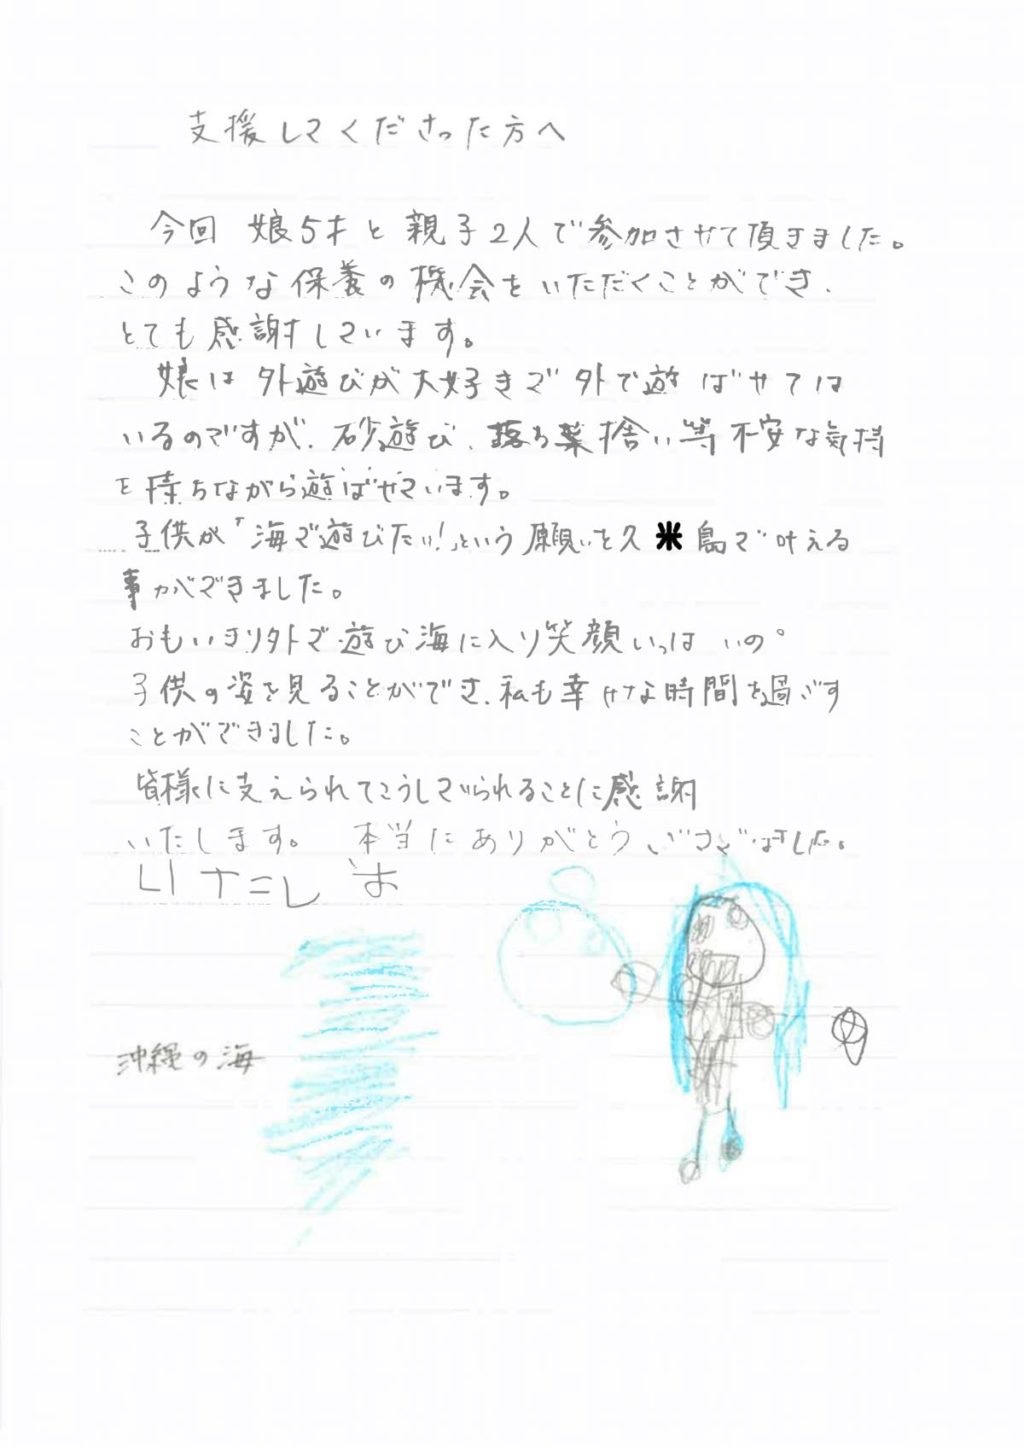 支援してくださった方へ
今回 娘5才と親子2人で参加させて頂きました。
このような保養の機会をいただくことができ、
とても感謝しています。
娘は外遊びが大好きで外で遊ばせては
いるのですが、砂遊び、落ち葉捨い等不安な気持
を持ちながら遊ばせています。
子供が「海で遊びたい!」という願いを久米島で叶える
事ができました。
おもいきり外で遊び海に入り笑顔いっぱいの
子供の姿を見ることができ、私も幸せな時間を過ごす
ことができました。
皆様に支えられてこうしていられることに感謝
いたします。 本当にありがとうございました。
沖縄の海